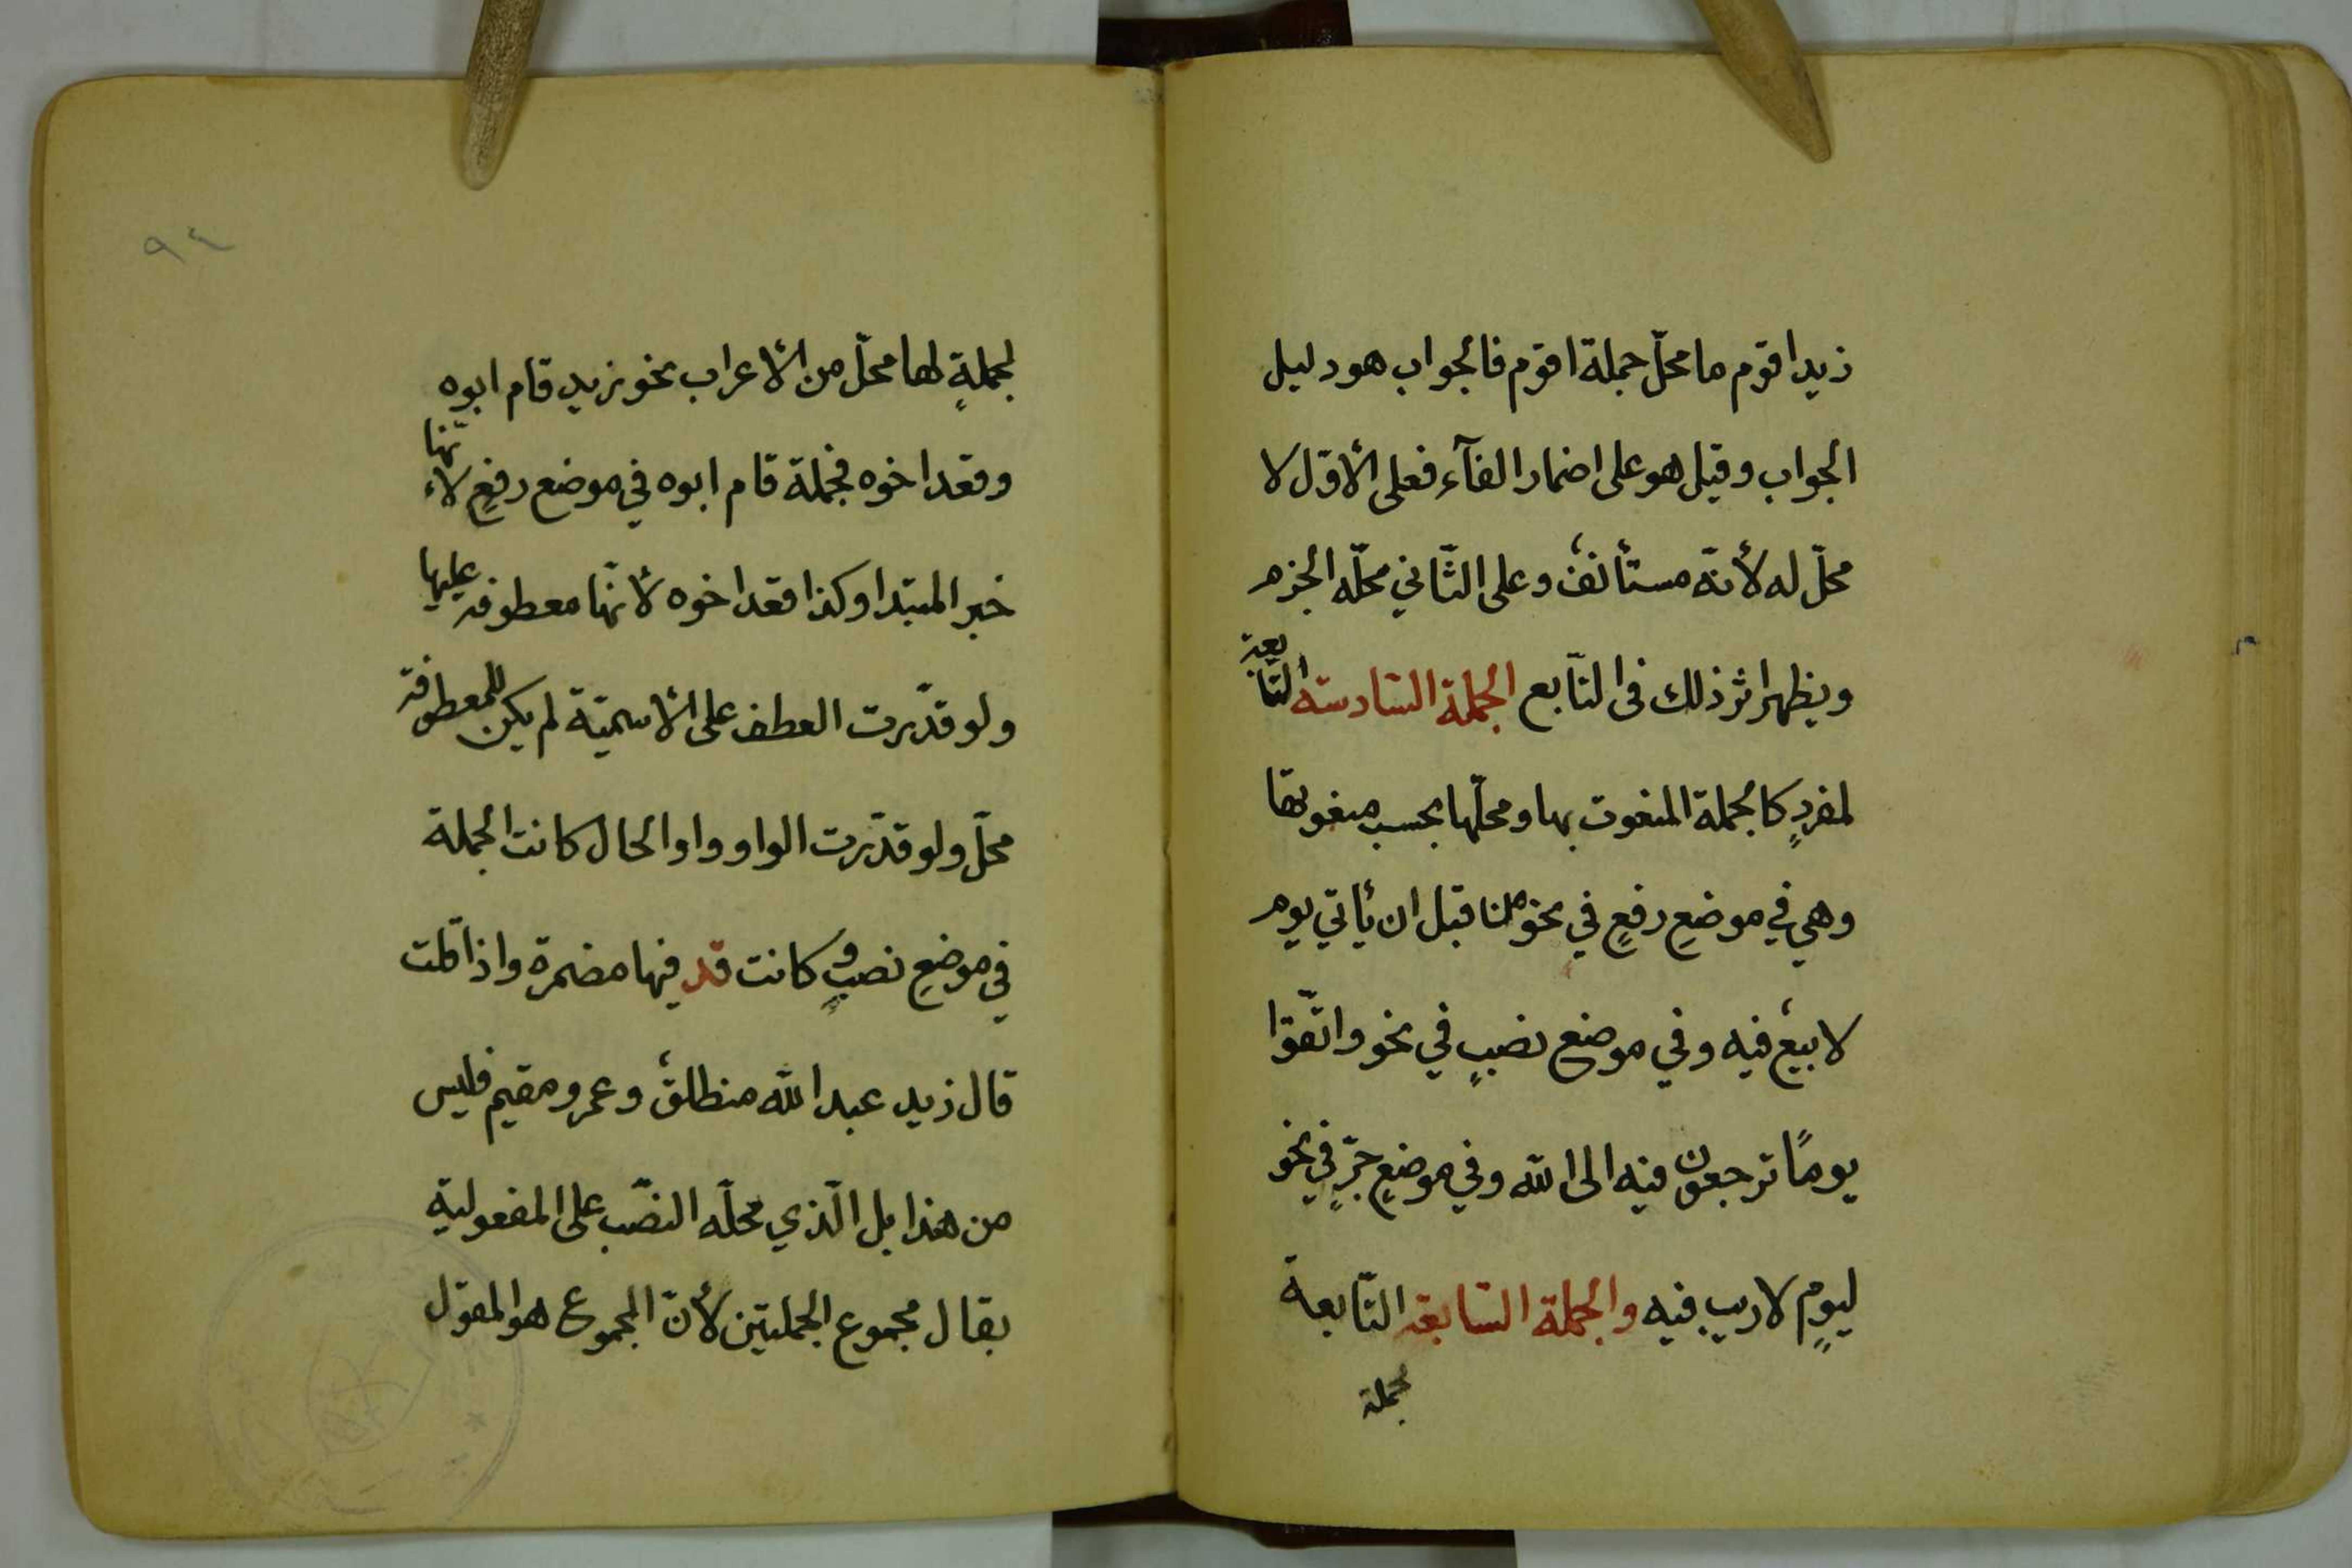 زيد اقوم ما محلّ جملة اقوم فالجواب هو دليل
الجواب وقيل هو على اضمار الفآء فعلى الأوّل لا
محلّ له لأنّه مستأنفٌ وعلى الثّاني محلّه الجزم
ويظهر اثر ذلك فى التّابع الجملة السّادسة التّابعة
لمفردٍ كالجملة المنعوت بها ومحلّها بحسب منعوتها
وهي في موضعِ رفعٍ في نحو من قبل ان يأتي يوم
لا بيعٌ فيه وفي موضع نصبٍ في نحو واتّقوا
يومًا ترجعون فيه الى الله وفي موضعِ جرٍّ في نحو
ليومٍ لا ريب فيه والجملة السّابعة التّابعة
لجملة
٩٤
لجملةٍ لها محلّ من الأعراب نحو زيد قام ابوه
وقعد اخوه فجملة قام ابوه في موضع رفعٍ لأنّها
خبر المبتدا وكذا قعد اخوه لأنّها معطوفة عليها
ولو قدّرت العطف على الأسميّة لم يكن للمعطوفة
محلّ ولو قدّرت الواو واو الحال كانت الجملة
في موضعِ نصبٍ وكانت قد فيها مضمرة واذا قلت
قال زيد عبد الله منطلقٌ وعمرو مقيم فليس
من هذا بل الّذي محلّه النّصب على المفعولية
بقال مجموع الجملتين لأنّ المجموع هو المقول